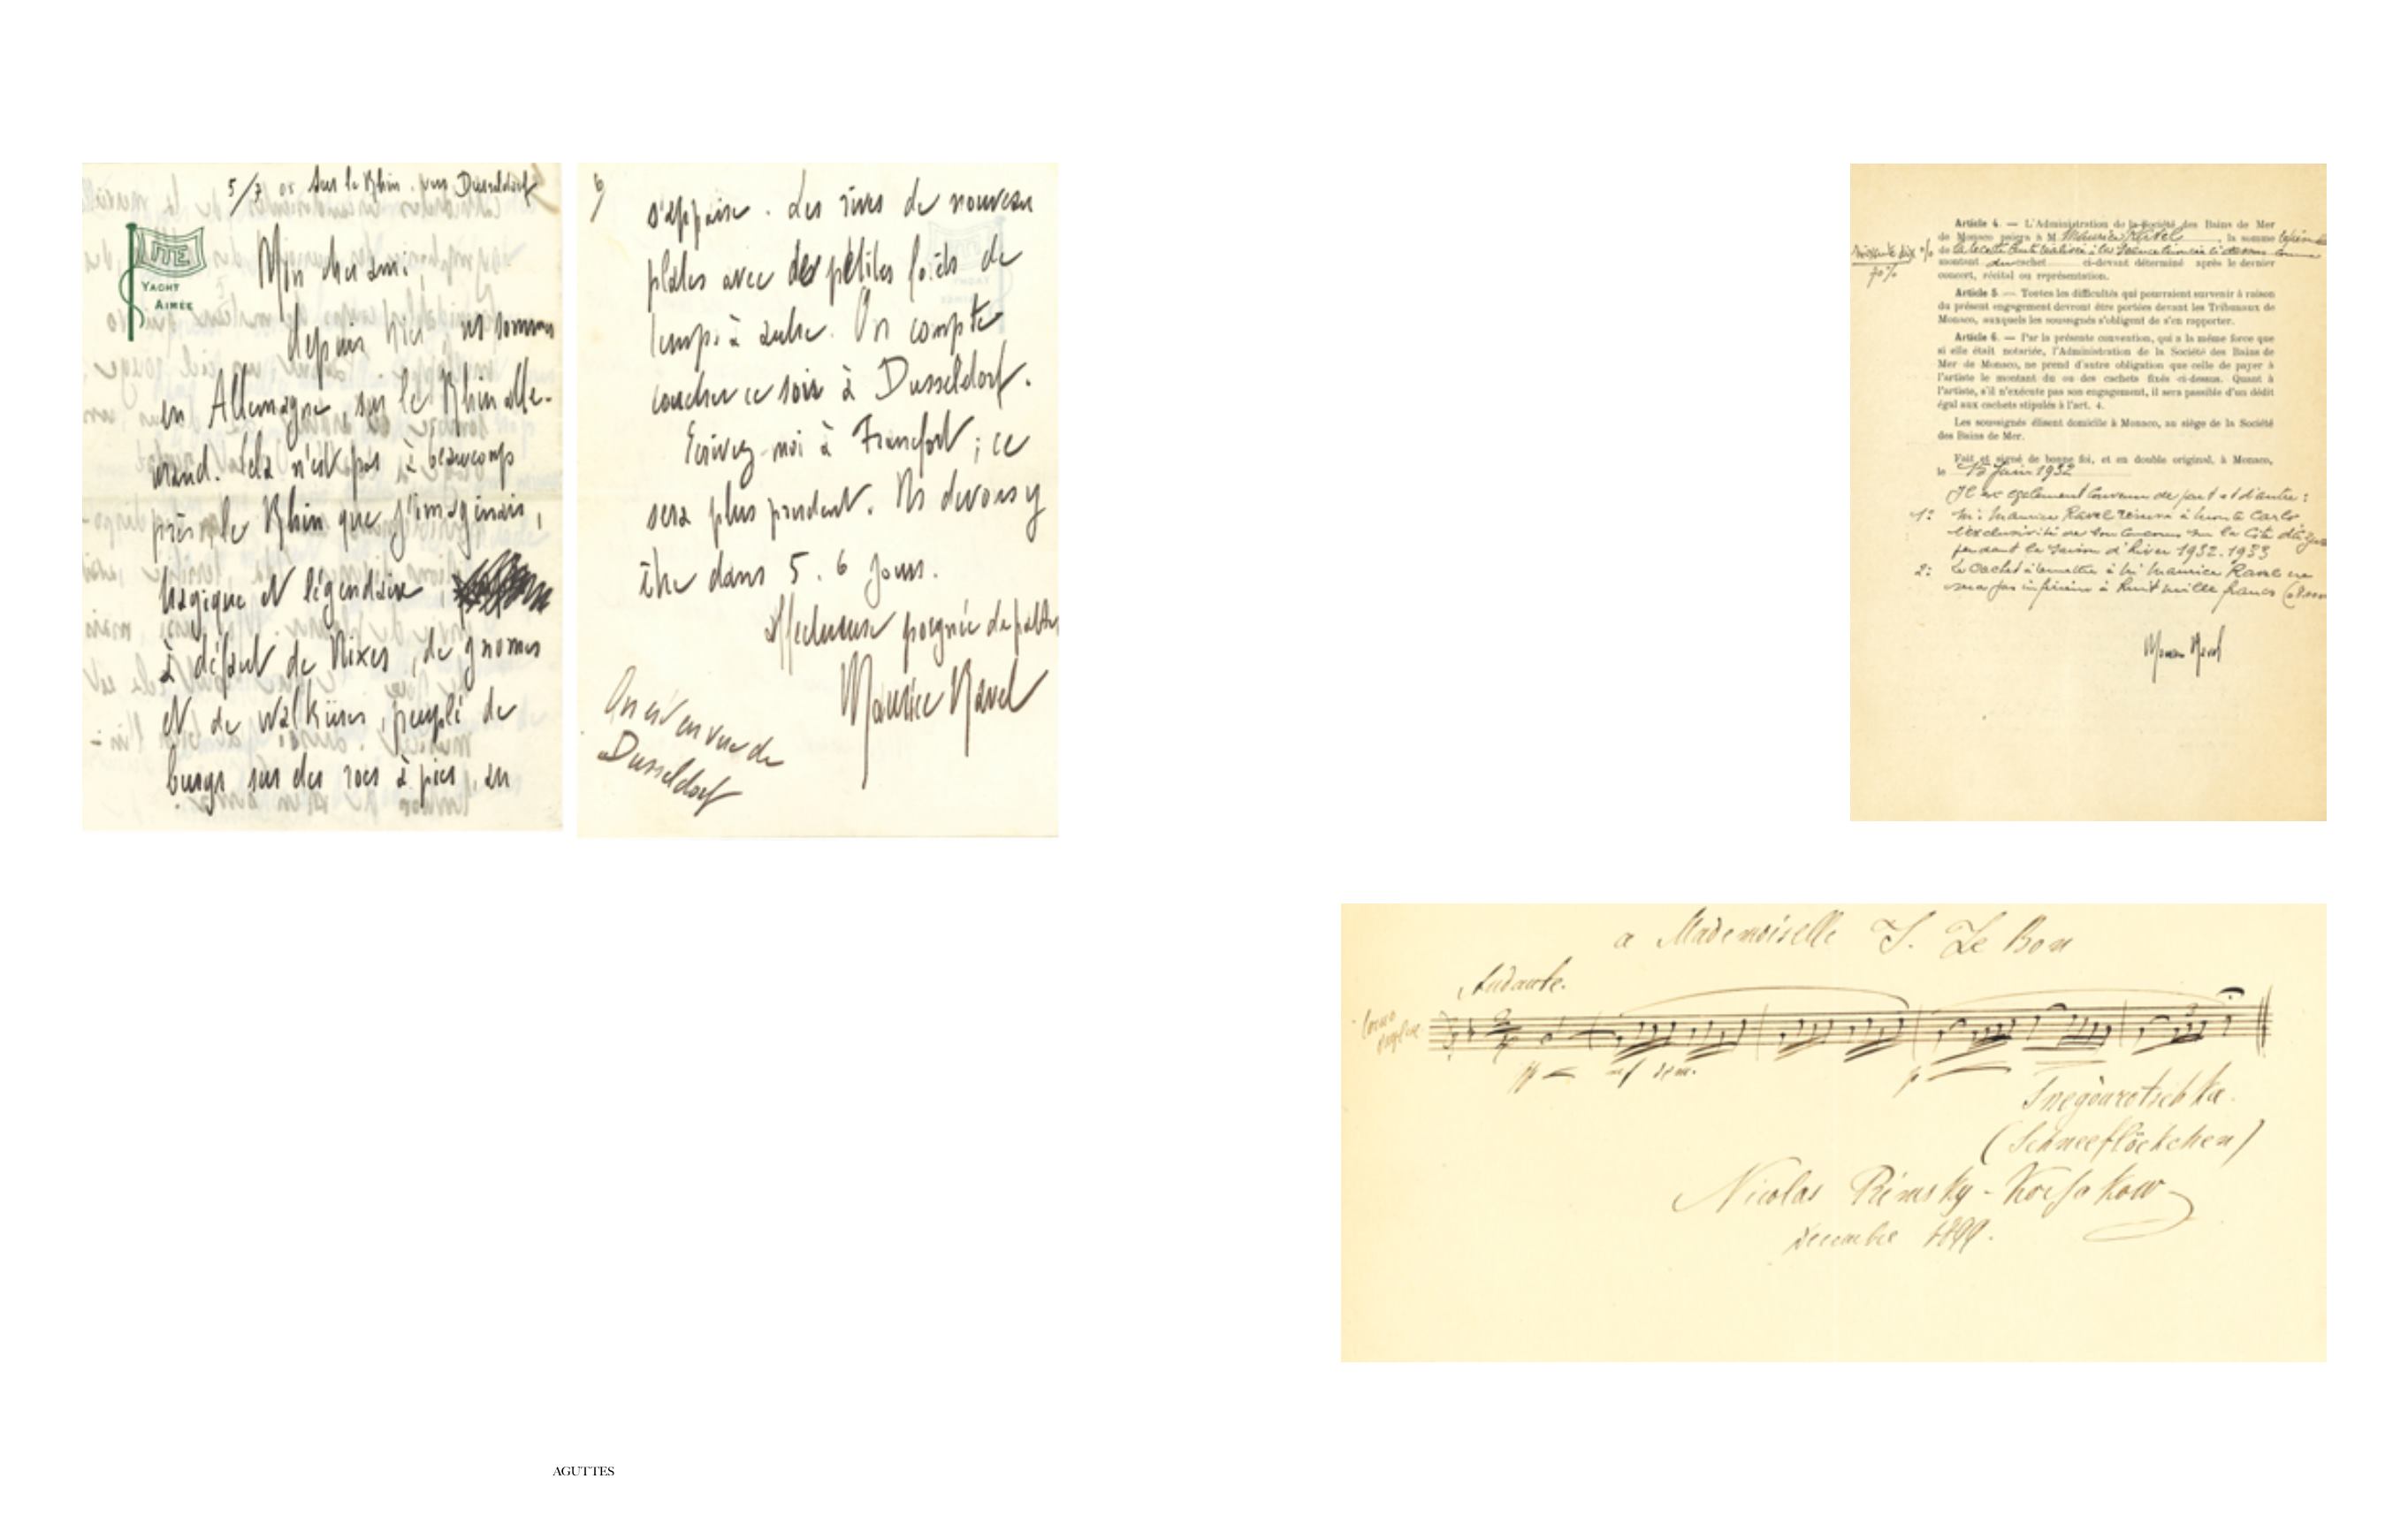 5/7 05 Sur le Rhin. vers Dusseldorf
YACHT
AIMÉE
Mon cher ami.
depuis hier, ns sommes
en Allemagne, sur le Rhin alle-
mand. Cela n'est pas à beaucoup
près le Rhin que j'imaginais,
tragique et légendaire,
à défaut de Nixes, de gnomes
et de Walküres, peuplé de
burgs sur des rocs à pics, en
6
s'appaise. Les rives de nouveau
plates avec des petites forêts de
temps à autre. On compte
coucher ce soir à Dusseldorf.
Ecrivez-moi à Francfort; ce
sera plus prudent. Ns devons y
être dans 5. 6 jours.
affectueuse poignée de pattes
Maurice Ravel
On est en vue de
Dusseldorf
Article 4. — L'Administration de la Société des Bains de Mer
de Monaco paiera à M. Maurice Ravel la somme
soixante dix %
70%
de la recette comme
montant du cachet ci-devant déterminé après le dernier
concert, récital ou représentation.
Article 5. — Toutes les difficultés qui pourraient survenir à raison
du présent engagement devront être portées devant les Tribunaux de
Monaco, auxquels les soussignés s'obligent de s'en rapporter.
Article 6. — Par la présente convention, qui a la même force que
si elle était notariée, l'Administration de la Société des Bains de
Mer de Monaco, ne prend d'autre obligation que celle de payer à
l'artiste le montant du ou des cachets fixés ci-dessus. Quant à
l'artiste, s'il n'exécute pas son engagement, il sera passible d'un dédit
égal aux cachets stipulés à l'art. 4.
Les soussignés élisent domicile à Monaco, au siège de la Société
des Bains de Mer.
Fait et signé de bonne foi, et en double original, à Monaco,
le 15 Juin 1932
Il est également convenu de part et d'autre:
1: M. Maurice Ravel réserve à Monte Carlo
l'exclusivité de son concours sur la Côte d'Azur
pendant la saison d'hiver 1932.1933
2: Le cachet à remettre à M. Maurice Ravel ne
sera pas inférieur à huit mille francs
Maurice Ravel
a Mademoiselle J. Le Bon
Andante.
Corno
Inglese
pp mf dim. p
Snegourotschka.
(Schneeflöckchen)
Nicolas Rimsky-Korsakow
Decembre 1899.
AGUTTES